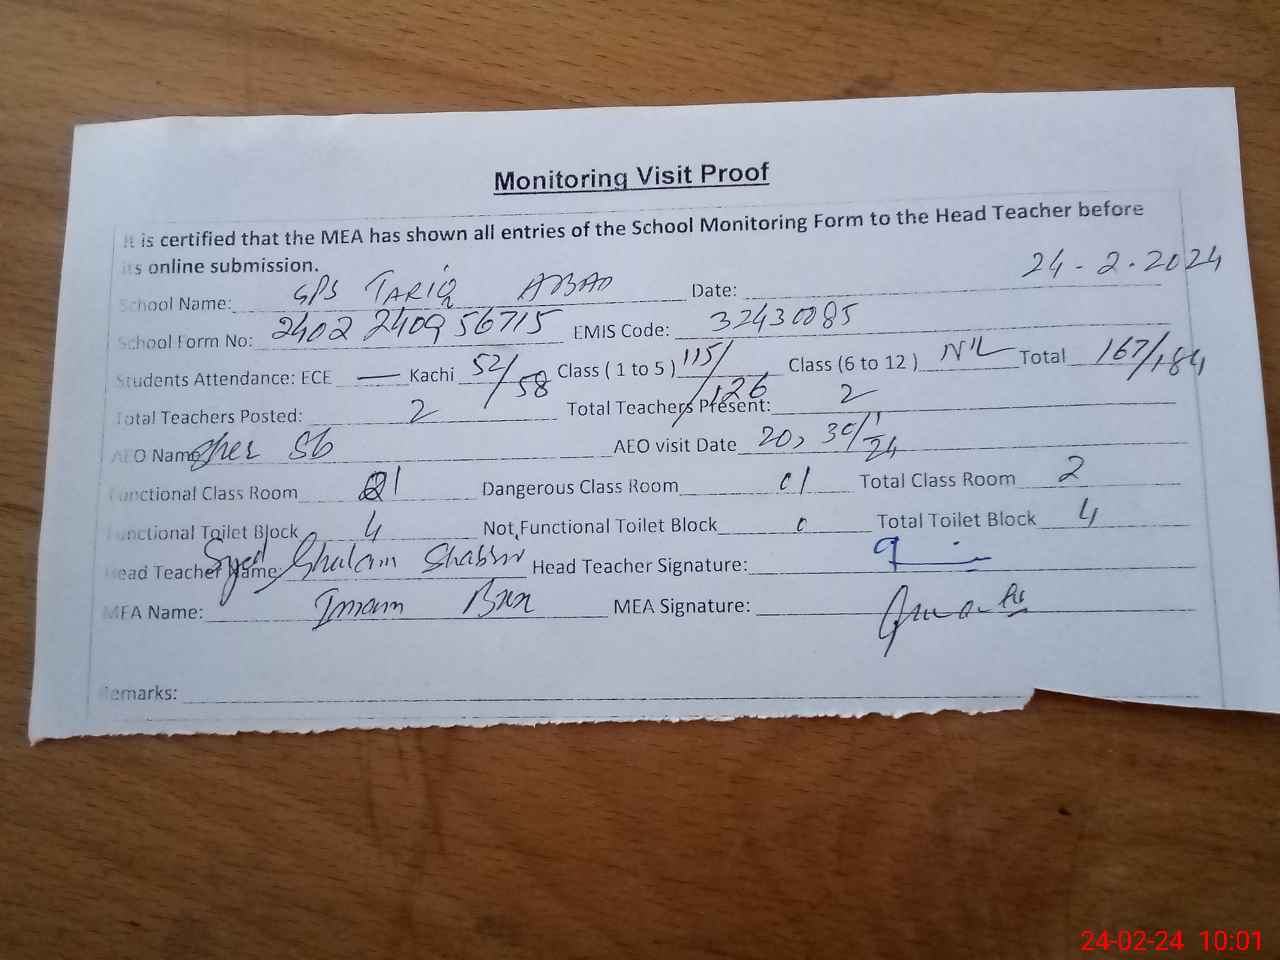 Monitoring Visit Proof
It is certified that the MEA has shown all entries of the School Monitoring Form to the Head Teacher before
its online submission.
School Name: GPS TARIQ ABAD Date: 24-2-2024
School Form No: 2402 2409 56715 EMIS Code: 32430085
Students Attendance: ECE — Kachi 52/58 Class ( 1 to 5 ) 115/126 Class (6 to 12 ) NIL Total 167/184
Total Teachers Posted: 2 Total Teachers Present: 2
AEO Name Sb AEO visit Date 20, 30/1/24
Functional Class Room 01 Dangerous Class Room 01 Total Class Room 2
Functional Toilet Block 4 Not Functional Toilet Block 0 Total Toilet Block 4
Head Teacher Name: Syed Ghulam Shabbir Head Teacher Signature:
MEA Name: Imam Bux MEA Signature:
Remarks:
24-02-24 10:01